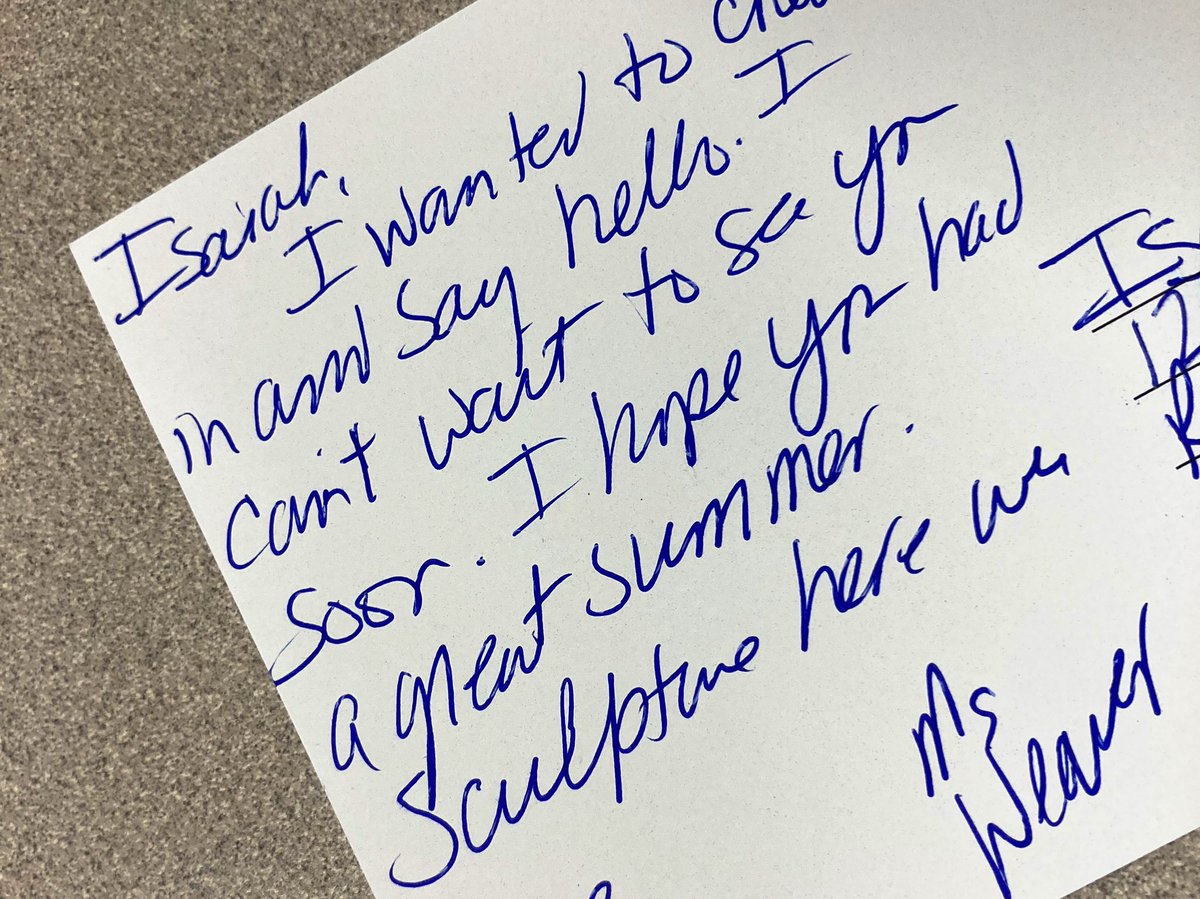 Isaiah,
I wanted to che
in and say hello. I
can't wait to see you
soon. I hope you had
a great summer.
Sculpture here we
Ms
Weaver
Is
12
R